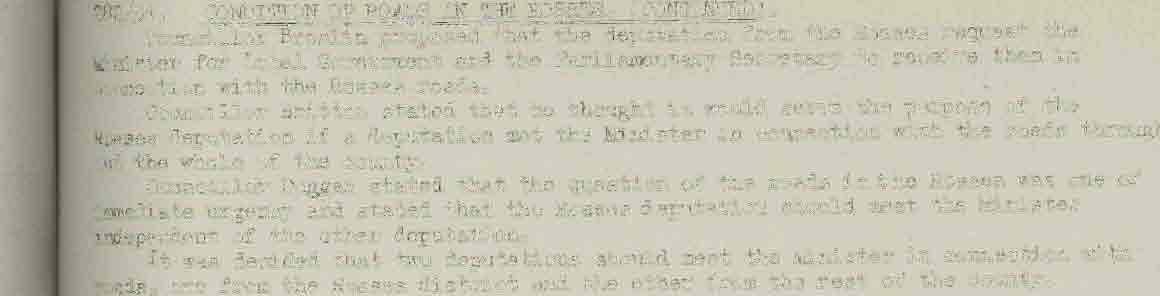 CONDITION OF ROADS IN THE ROSSES. (CONTINUED).
Councillor Breslin proposed that the deputation from the Rosses request the
Minister for Local Government and the Parliamentary Secretary to receive them in
connection with the Rosses roads.
Councillor stated that he thought it would serve the purpose of the
Rosses deputation if a deputation met the Minister in connection with the roads through
out the whole of the county.
Councillor Duggan stated that the question of the roads in the Rosses was one of
immediate urgency and stated that the Rosses deputation should meet the Minister
independent of the other deputation.
It was decided that two deputations should meet the Minister in connection with
roads, one from the Rosses district and the other from the rest of the county.